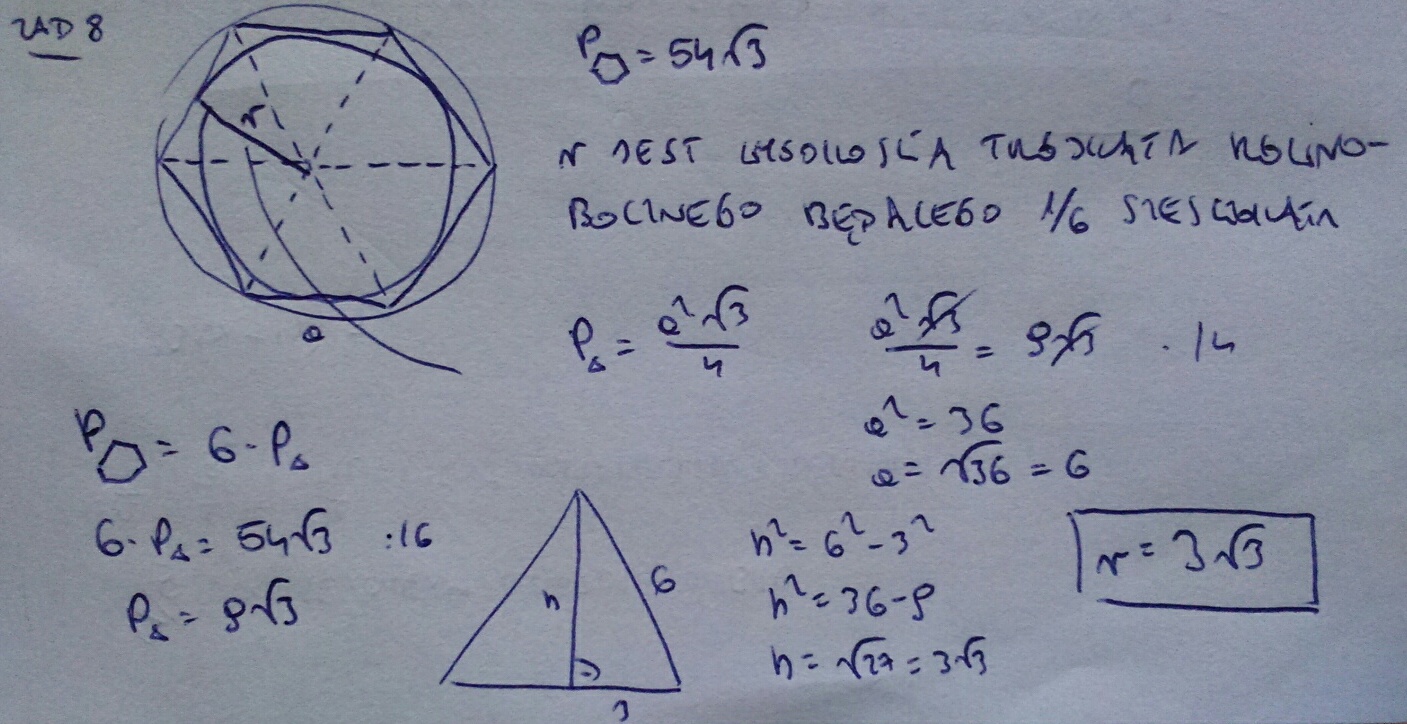 ZAD 8
P⬡ = 54√3
r JEST WYSOKOŚCIĄ TRÓJKĄTA RÓWNO-
BOCZNEGO BĘDĄCEGO 1/6 SZEŚCIOKĄTA
r
a
P△ = a²√3/4
a²√3/4 = 9√3 · /4
a² = 36
a = √36 = 6
P⬡ = 6·P△
6·P△ = 54√3 :/6
P△ = 9√3
h
6
3
h² = 6² - 3²
h² = 36 - 9
h = √27 = 3√3
r = 3√3